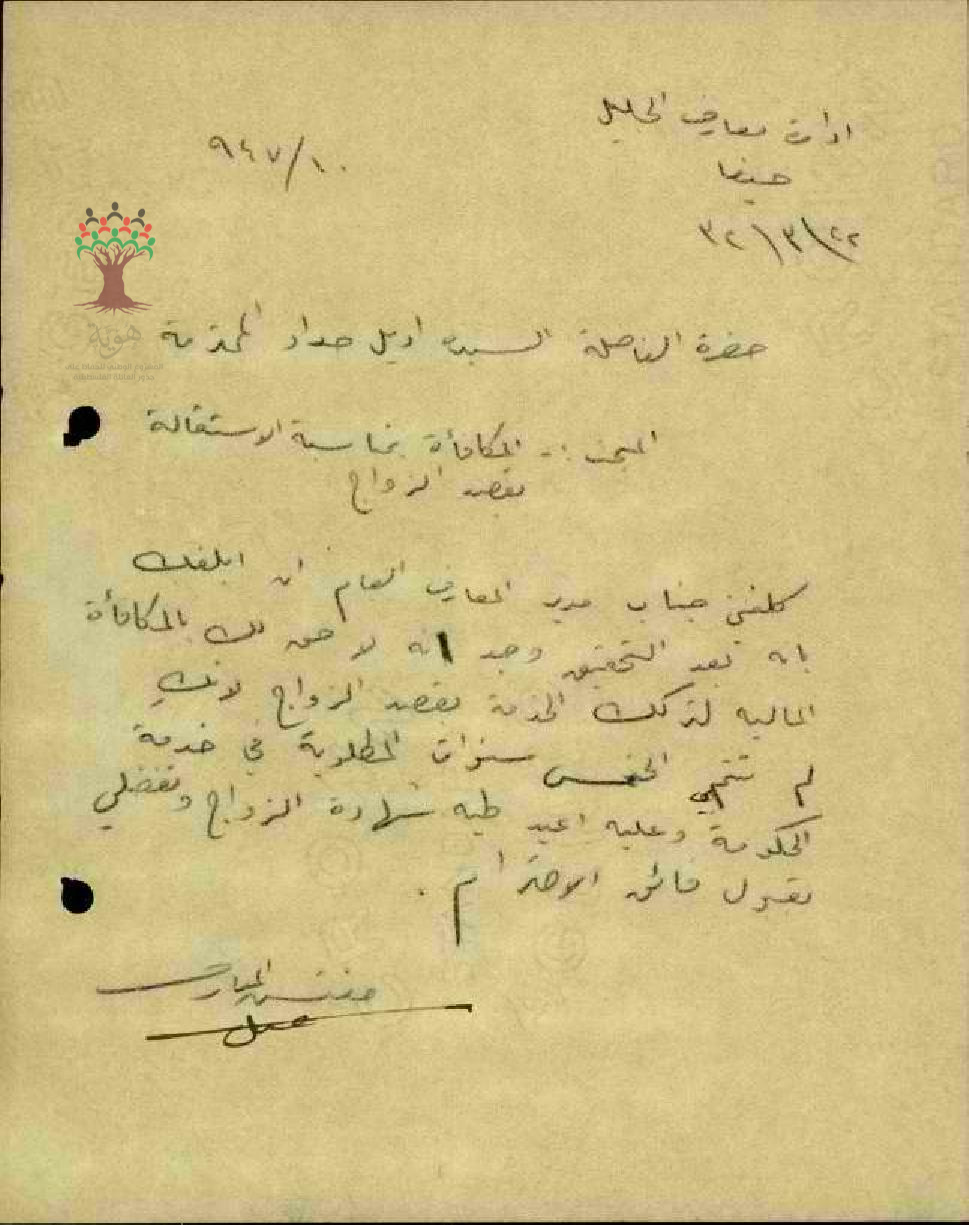 ادارة معارف الجليل
حيفا
٢٢/٣/٣٢
٩٤٧/١٠
هوية
حضرة الفاضلة السيدة اديل حداد المحترمة
المبحث :- المكافأة بمناسبة الاستقالة
بقصد الزواج
كلفني جناب مدير المعارف العام ان ابلغك
بانه بعد التحقيق وجد انه لا حق لك بالمكافأة
المالية لتركك الخدمة بقصد الزواج لانكِ
لم تتمي الخمس سنوات المطلوبة في خدمة
الحكومة وعليه اعيد طيه شهادة الزواج وتفضلي
بقبول فائق الاحترام .
مفتش المعارف